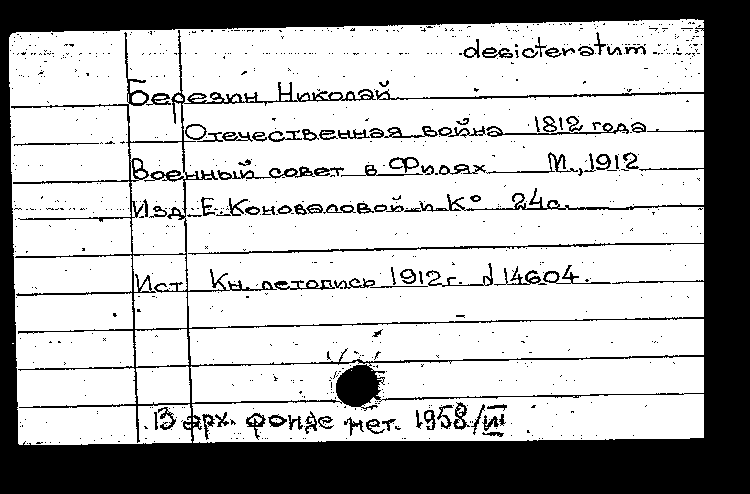 desicteratum.
Березин, Николай
Отечественная война 1812 года.
Военный совет в Филях М., 1912
Изд. Е. Коноваловой и К° 24с.
Ист Кн. летопись 1912г. №14604.
В арх. фонде нет. 1958/III